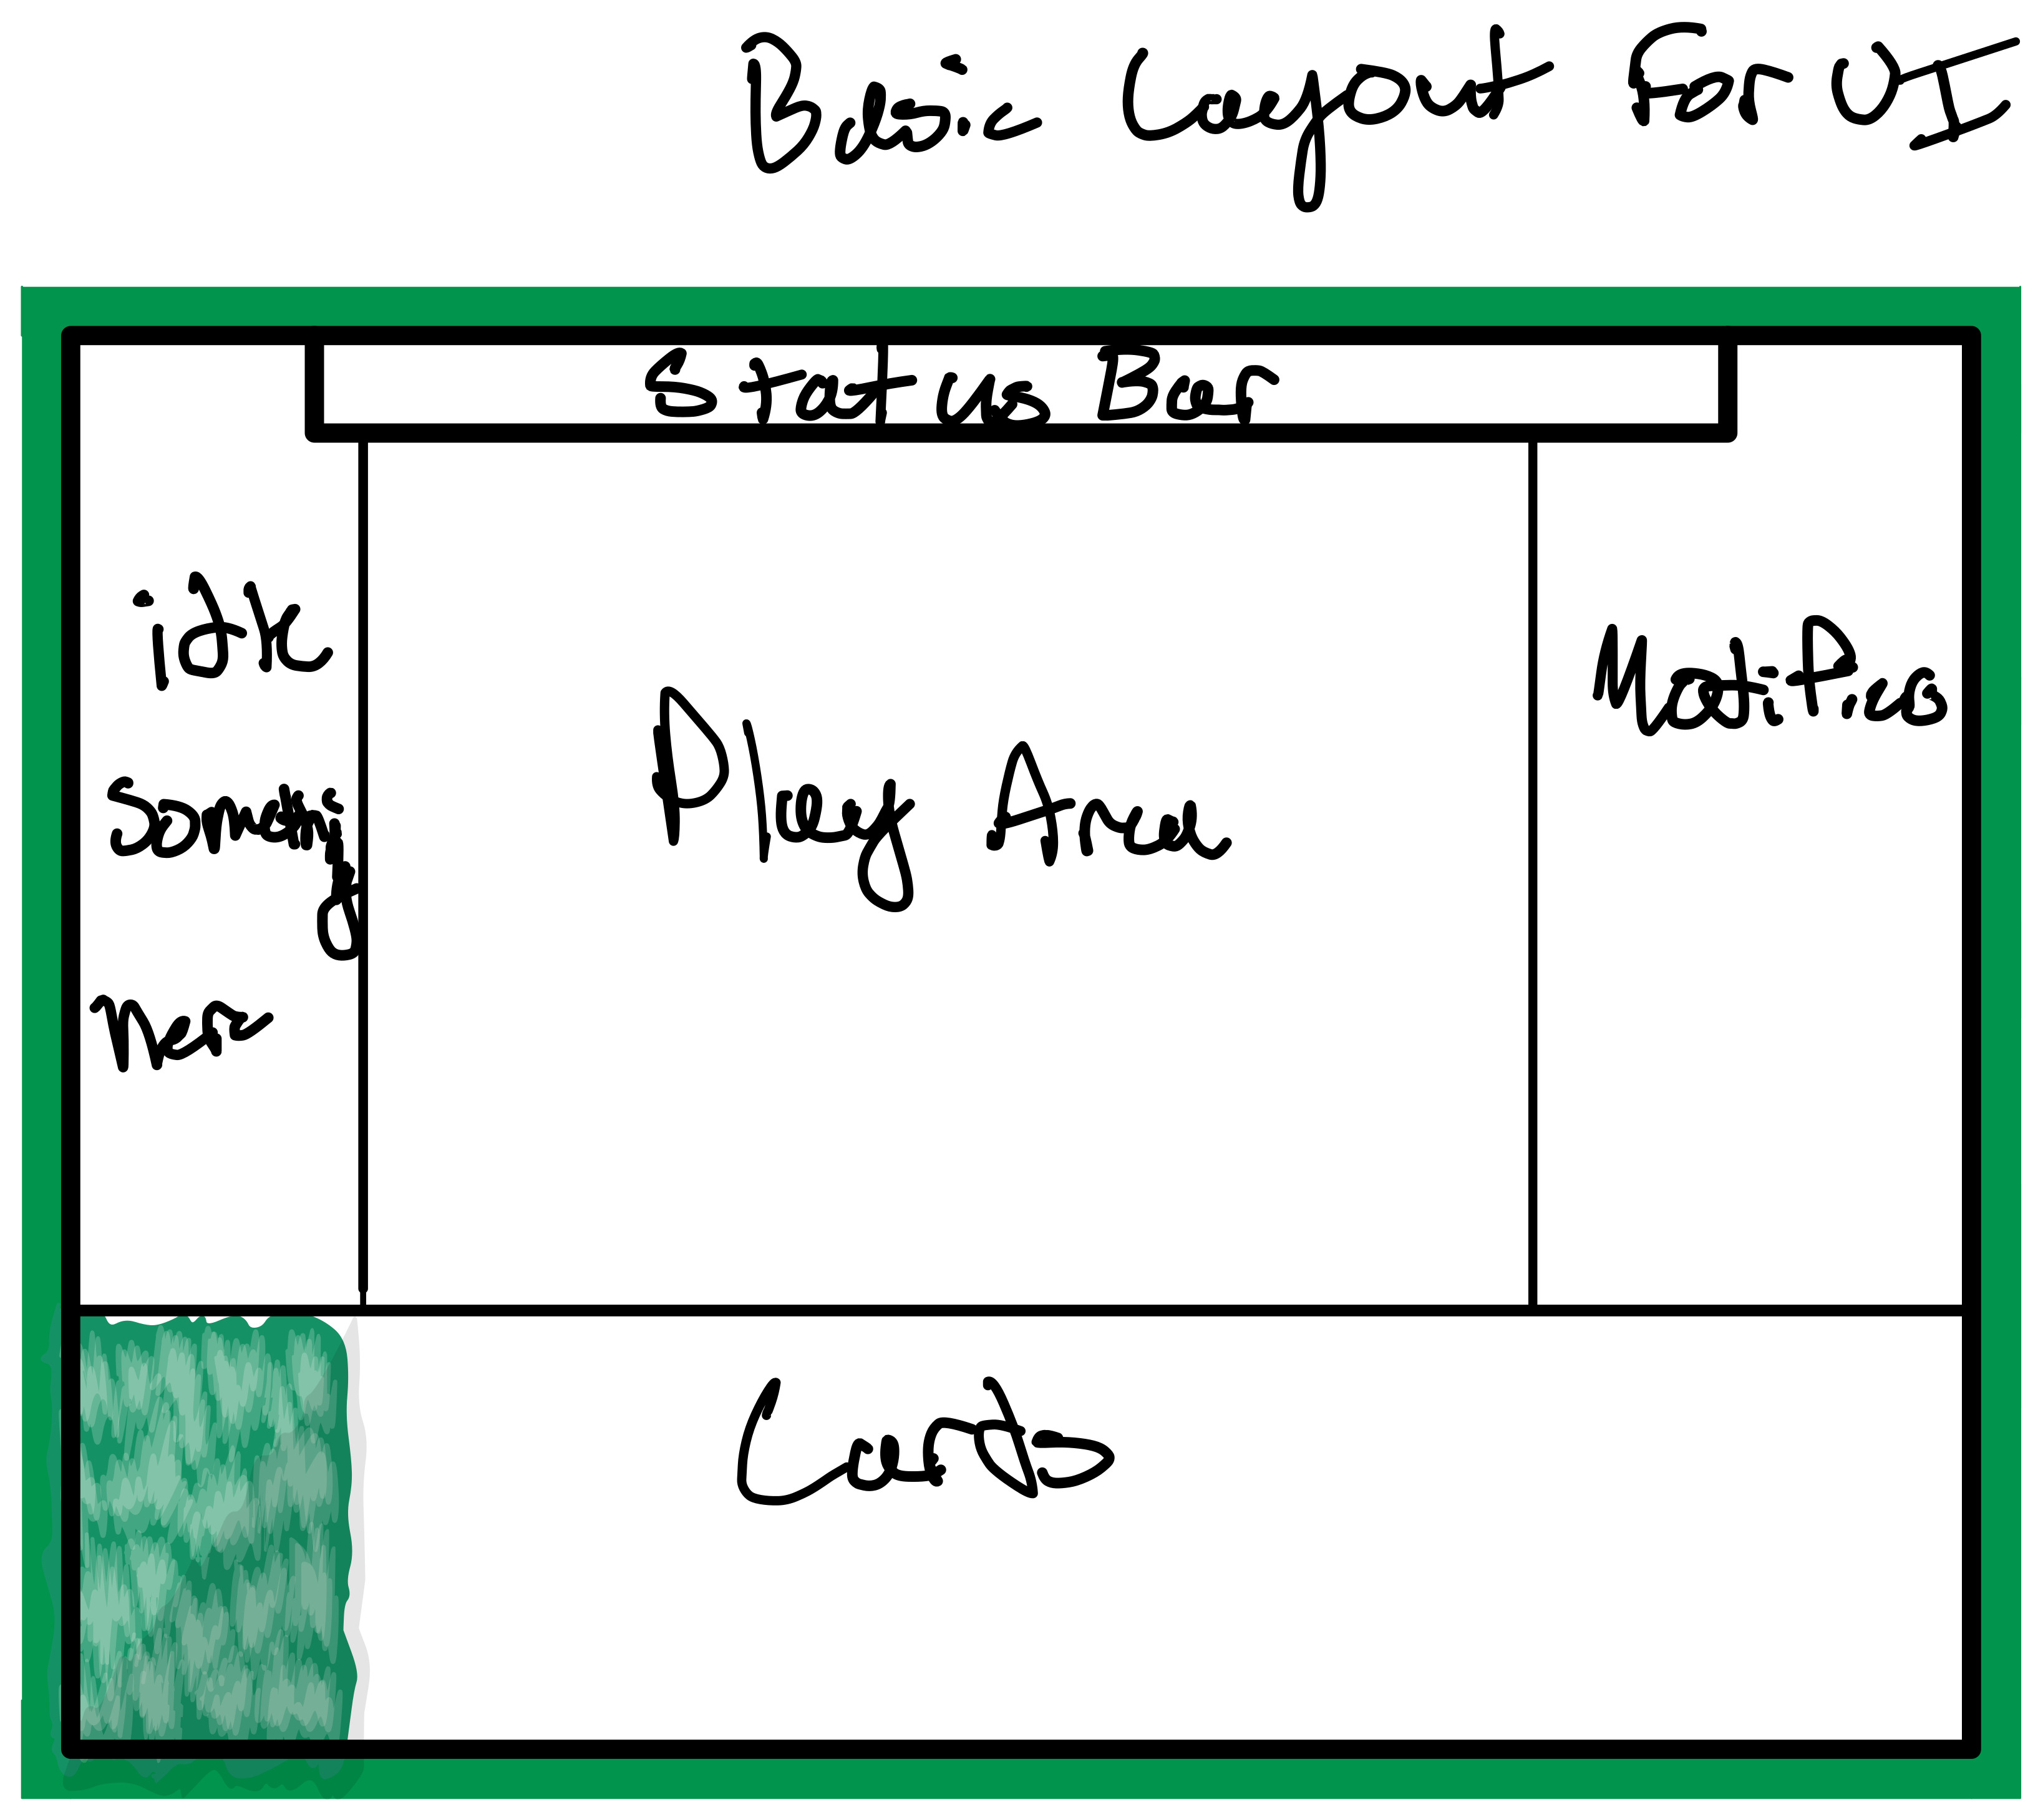 Basic Layout For UI
Status Bar
idk
Something
Here
Play Area
Notifics
Cards